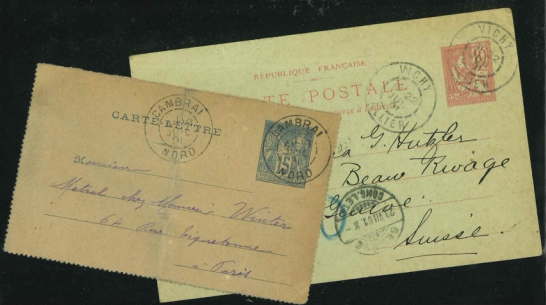 RÉPUBLIQUE FRANÇAISE
TE POSTALE
VICHY
ALLIER
VICHY
G. Hutzler
Beau Rivage
Genève
Suisse
CARTE-LETTRE
CAMBRAI
NORD
CAMBRAI
NORD
15
Monsieur
Métral chez Monsieur Winter
64 Rue Tiquetonne
à Paris